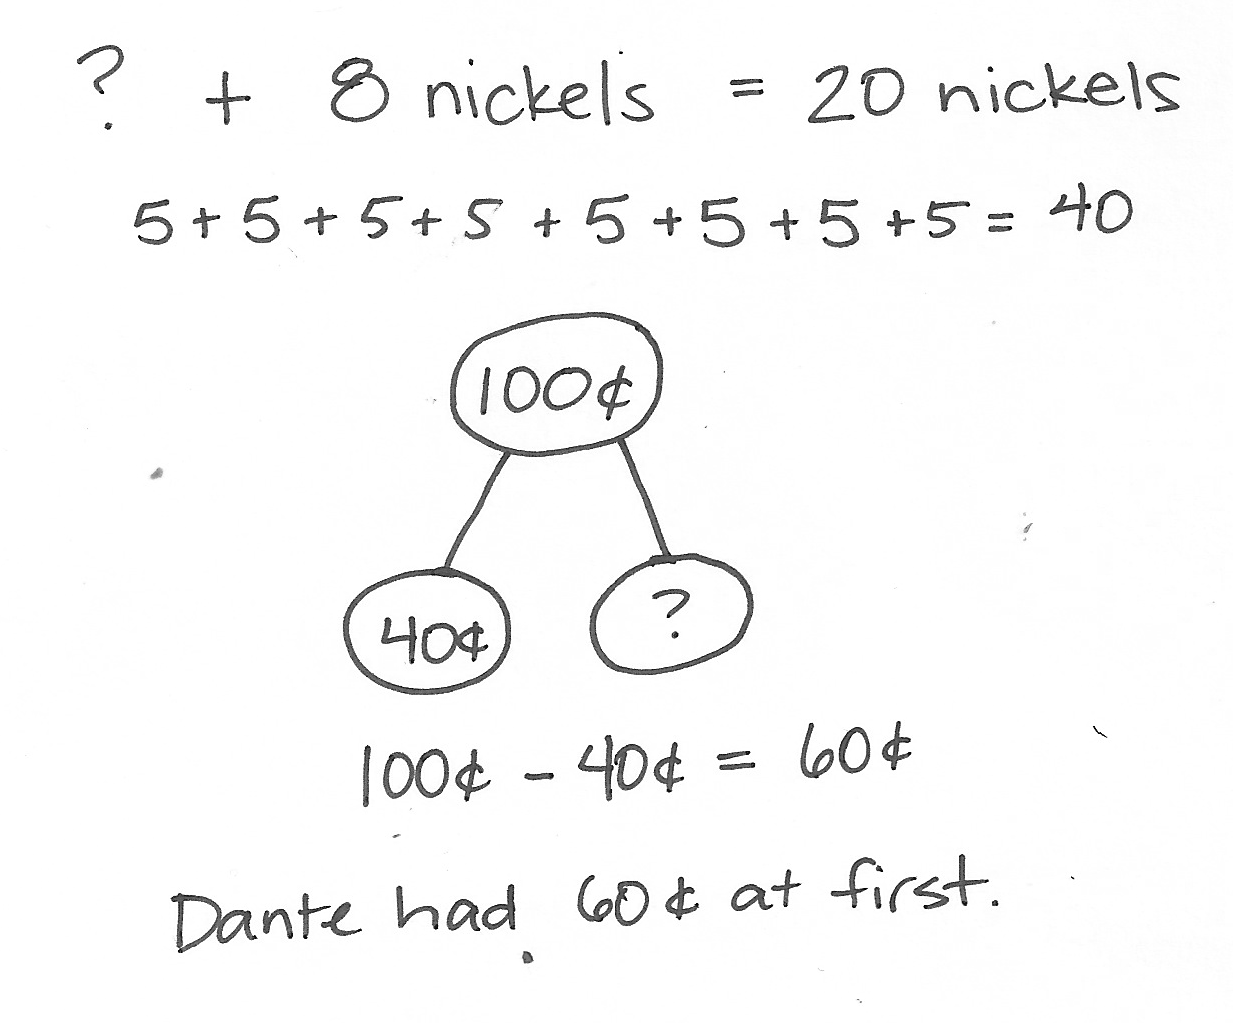 ? + 8 nickels = 20 nickels
5 + 5 + 5 + 5 + 5 + 5 + 5 + 5 = 40
100¢
40¢ ?
100¢ - 40¢ = 60¢
Dante had 60¢ at first.